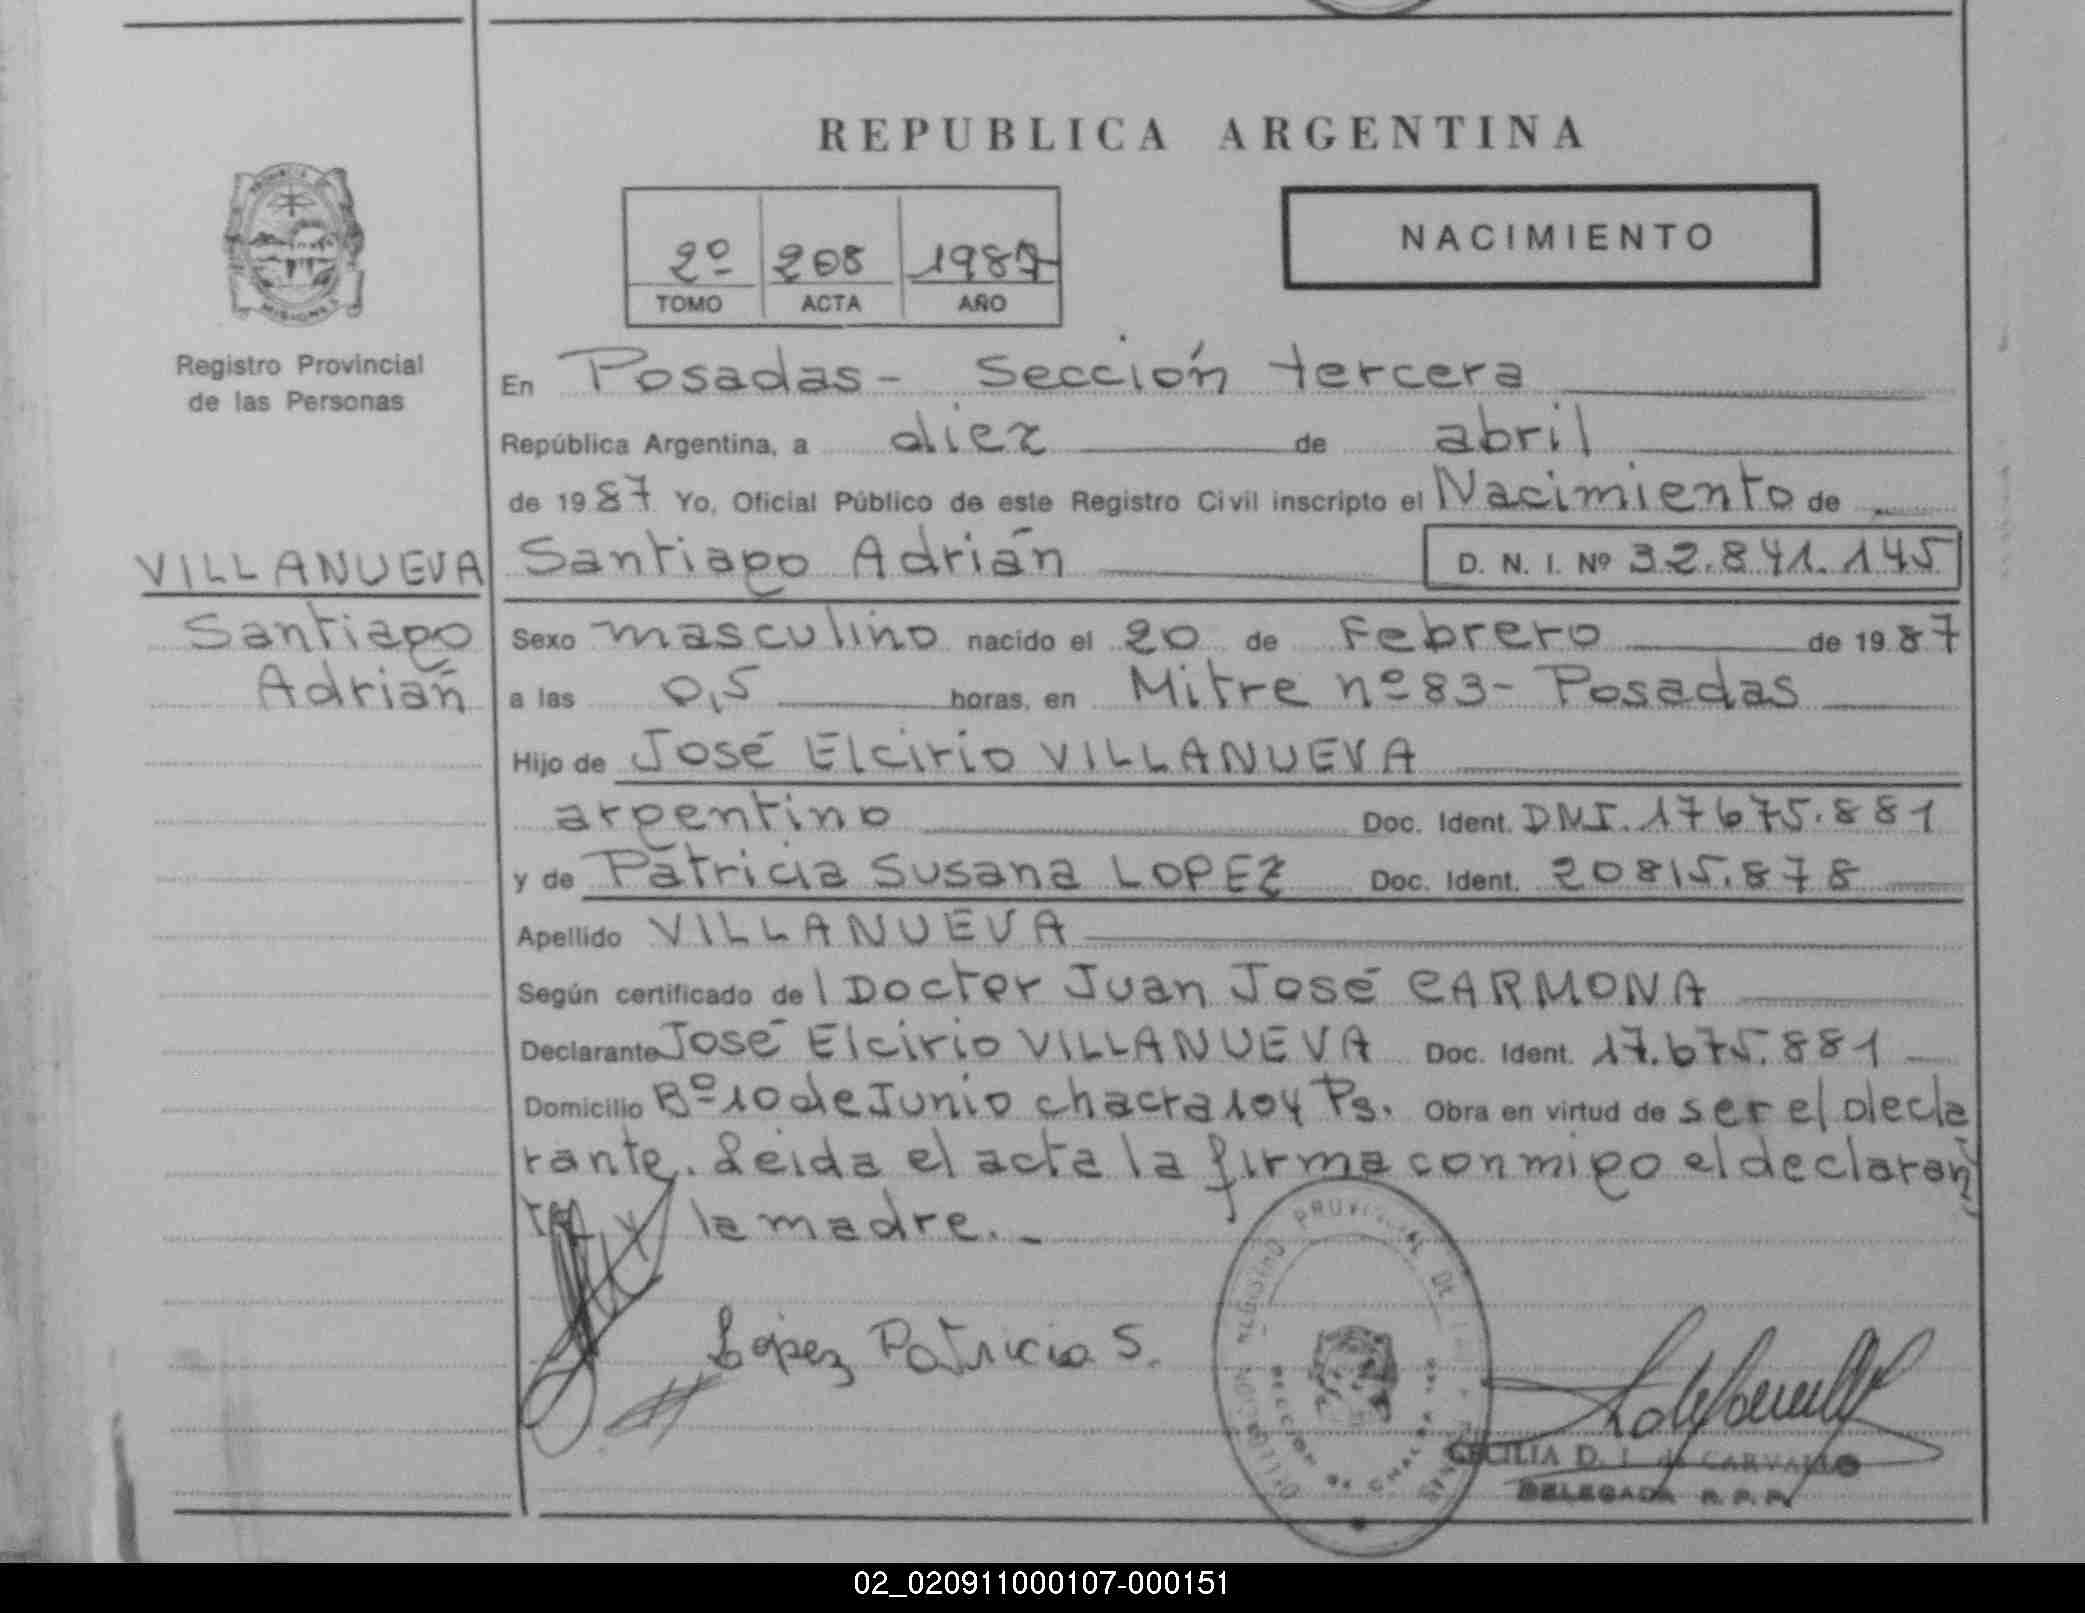 REPUBLICA ARGENTINA
PROVINCIA
MISIONES
Registro Provincial
de las Personas
2º 208 1987
TOMO ACTA AÑO
NACIMIENTO
En Posadas - Sección tercera
República Argentina, a diez de abril
de 1987 Yo, Oficial Público de este Registro Civil inscripto el Nacimiento de
VILLANUEVA Santiago Adrián D. N. I. Nº 32.841.145
Santiago
Adrián
Sexo masculino nacido el 20 de Febrero de 1987
a las 0,5 horas, en Mitre nº 83 - Posadas
Hijo de José Elcirio VILLANUEVA
argentino Doc. Ident. DNI. 17675.881
y de Patricia Susana LOPEZ Doc. Ident. 20815.878
Apellido VILLANUEVA
Según certificado del Doctor Juan José CARMONA
Declarante José Elcirio VILLANUEVA Doc. Ident. 17.675.881
Domicilio Bº 10 de Junio chacra 104 Ps. Obra en virtud de ser el decla
rante. Leida el acta la firma conmigo el declaran
te y la madre. -
López Patricia S.
REGISTRO PROVINCIAL DE
CECILIA D. I. de CARVALLO
DELEGADA R. P. P.
02_020911000107-000151